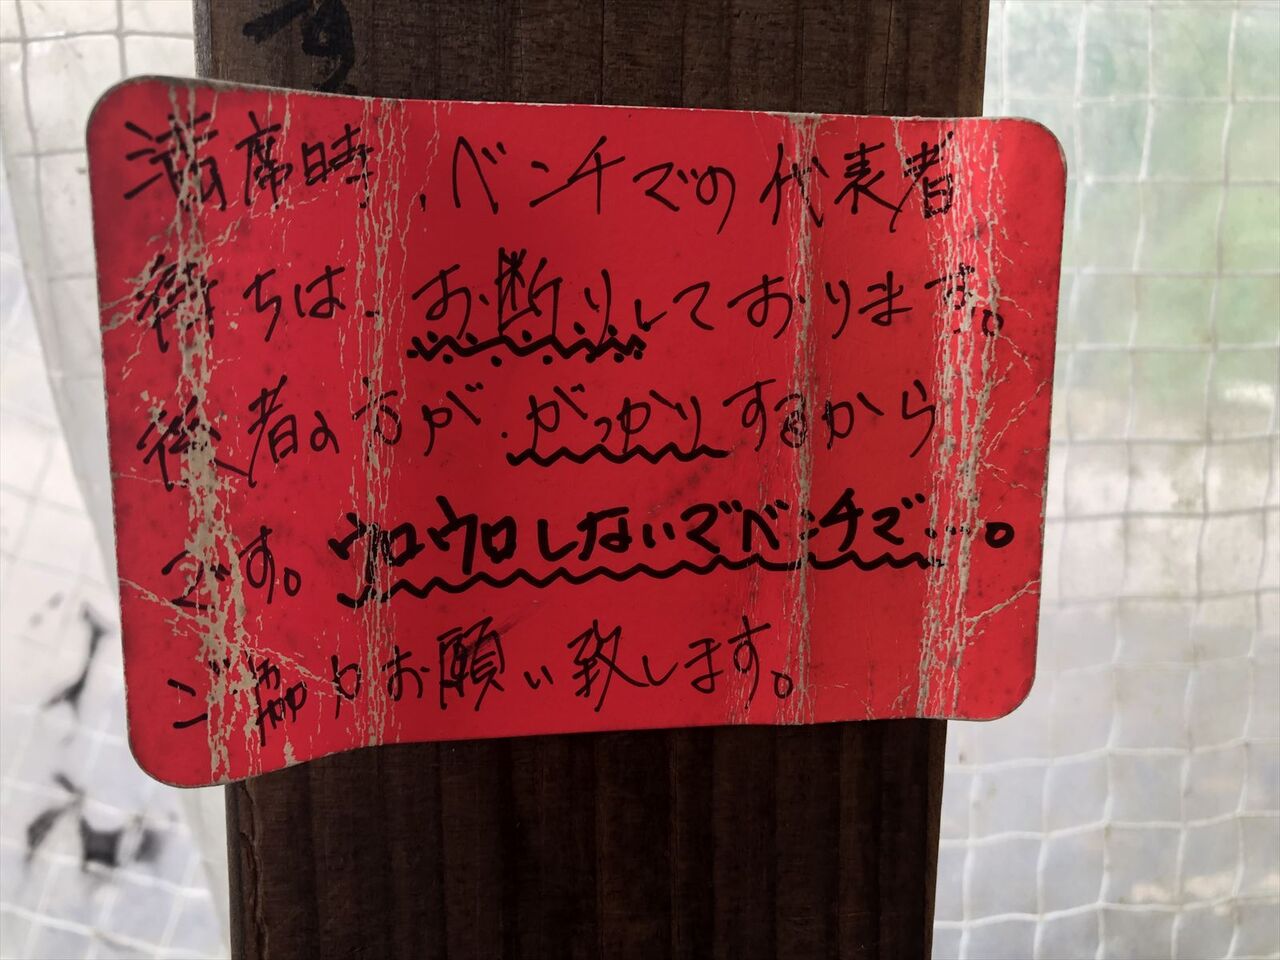 す
満席時、ベンチでの代表者
待ちは、お断りしております。
後者の方が、がっかりするから
です。ウロウロしないでベンチで…。
ご協力お願い致します。